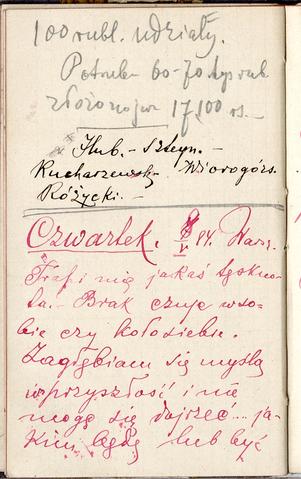 100 rubl. udziały.
Potrzeba 60-70 tys rub
złożono już 17,100 rs.-
Hub. - Szteyn. -
Kucharzewski - Wiorogórs.
Różycki. -
Czwartek. 8/V 84. Warsz.
Trapi mię jakaś tęskno-
ta. - Brak czuję w so-
bie czy koło siebie.
Zagłębiam się myślą
w przyszłość i nie
mogę się dojrzeć... ja-
kim będę lub być